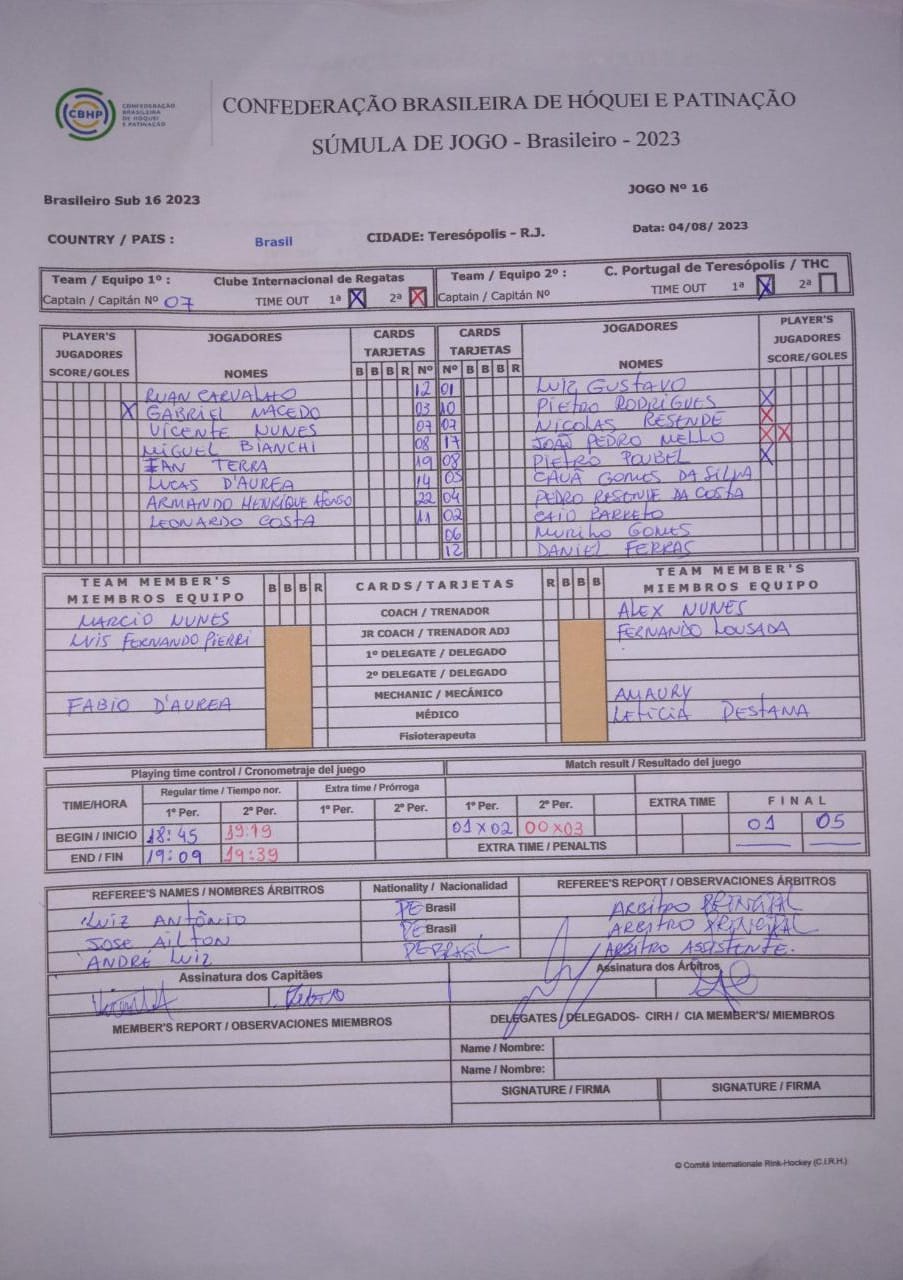 CBHP CONFEDERAÇÃO BRASILEIRA DE HÓQUEI E PATINAÇÃO
CONFEDERAÇÃO BRASILEIRA DE HÓQUEI E PATINAÇÃO
SÚMULA DE JOGO - Brasileiro - 2023
JOGO Nº 16
Brasileiro Sub 16 2023
COUNTRY / PAIS : Brasil CIDADE: Teresópolis - R.J. Data: 04/08/ 2023
Team / Equipo 1º : Clube Internacional de Regatas Team / Equipo 2º : C. Portugal de Teresópolis / THC
Captain / Capitán Nº 07 TIME OUT 1ª X 2ª X Captain / Capitán Nº TIME OUT 1ª X 2ª
PLAYER'S JUGADORES SCORE/GOLES JOGADORES NOMES CARDS TARJETAS B B B R Nº CARDS TARJETAS Nº B B B R JOGADORES NOMES PLAYER'S JUGADORES SCORE/GOLES
RUAN CARVALHO 12 01 LUIZ GUSTAVO
X GABRIEL MACEDO 03 10 PIETRO RODRIGUES X
VICENTE NUNES 07 07 NICOLAS RESENDE X
MIGUEL BIANCHI 08 17 JOÃO PEDRO MELLO X X
IAN TERRA 19 08 PIETRO POUBEL X
LUCAS D'AUREA 14 05 CAUÃ GOMES DA SILVA
ARMANDO HENRIQUE Afonso 22 04 PEDRO RESENDE DA COSTA
LEONARDO COSTA 11 02 CAIO BARRETO
06 MURILHO GOMES
12 DANIEL FERRAS
TEAM MEMBER'S MIEMBROS EQUIPO B B B R CARDS/TARJETAS R B B B TEAM MEMBER'S MIEMBROS EQUIPO
MARCIO NUNES COACH / TRENADOR ALEX NUNES
LUIS FERNANDO PIERRI JR COACH / TRENADOR ADJ FERNANDO LOUSADA
1º DELEGATE / DELEGADO
2º DELEGATE / DELEGADO
MECHANIC / MECÁNICO AMAURY
FABIO D'AUREA MÉDICO LETICIA
Fisioterapeuta
Playing time control / Cronometraje del juego Match result / Resultado del juego
TIME/HORA Regular time / Tiempo nor. Extra time / Prórroga
1º Per. 2º Per. 1º Per. 2º Per. 1º Per. 2º Per. EXTRA TIME FINAL
BEGIN / INICIO 18:45 19:19 01 x 02 00 x 03 01 05
END / FIN 19:09 19:39 EXTRA TIME / PENALTIS
REFEREE'S NAMES / NOMBRES ÁRBITROS Nationality / Nacionalidad REFEREE'S REPORT / OBSERVACIONES ÁRBITROS
LUIZ ANTÔNIO PE Brasil ARBITRO PRINCIPAL
JOSE AILTON PE Brasil ARBITRO PRINCIPAL
ANDRÉ LUIZ PE BRASIL ARBITRO ASSISTENTE.
Assinatura dos Capitães Assinatura dos Árbitros
MEMBER'S REPORT / OBSERVACIONES MIEMBROS DELEGATES / DELEGADOS- CIRH / CIA MEMBER'S/ MIEMBROS
Name / Nombre:
Name / Nombre:
SIGNATURE / FIRMA SIGNATURE / FIRMA
© Comité Internationale Rink-Hockey (C.I.R.H.)